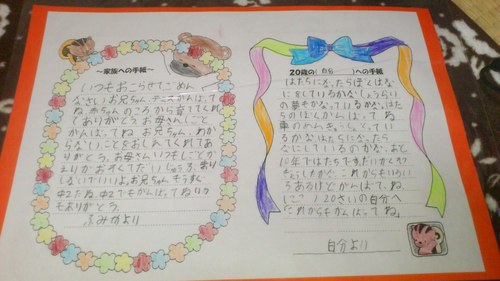 ～家族への手紙～
いつもおこらせてごめん
なさいお兄ちゃん、テニスがんばって
ね。赤ちゃんのころから育ててくれ
てありがとうお母さんしごと
がんばってね。お兄ちゃん、わから
ないことをおしえてくれてあ
りがとう。お母さんいつもしごとから
しなくていいよ。お兄ちゃんもうすぐ
中2だね。中2でもがんばってね。いつ
もありがとう。
ふみかより
20歳の(自分)への手紙
はたちになったらぼくはな
にをしているかな。しょうらい
の夢をかなっているかな。はた
ちのぼくがんばってね
車のめんきょとって
いるかな。はたちになったら
なにをしているのかな。あと
10年ではたちです。
これからもいろい
ろあるけどがんばってね。
20さいの自分へ
これからもがんばってね」
自分より